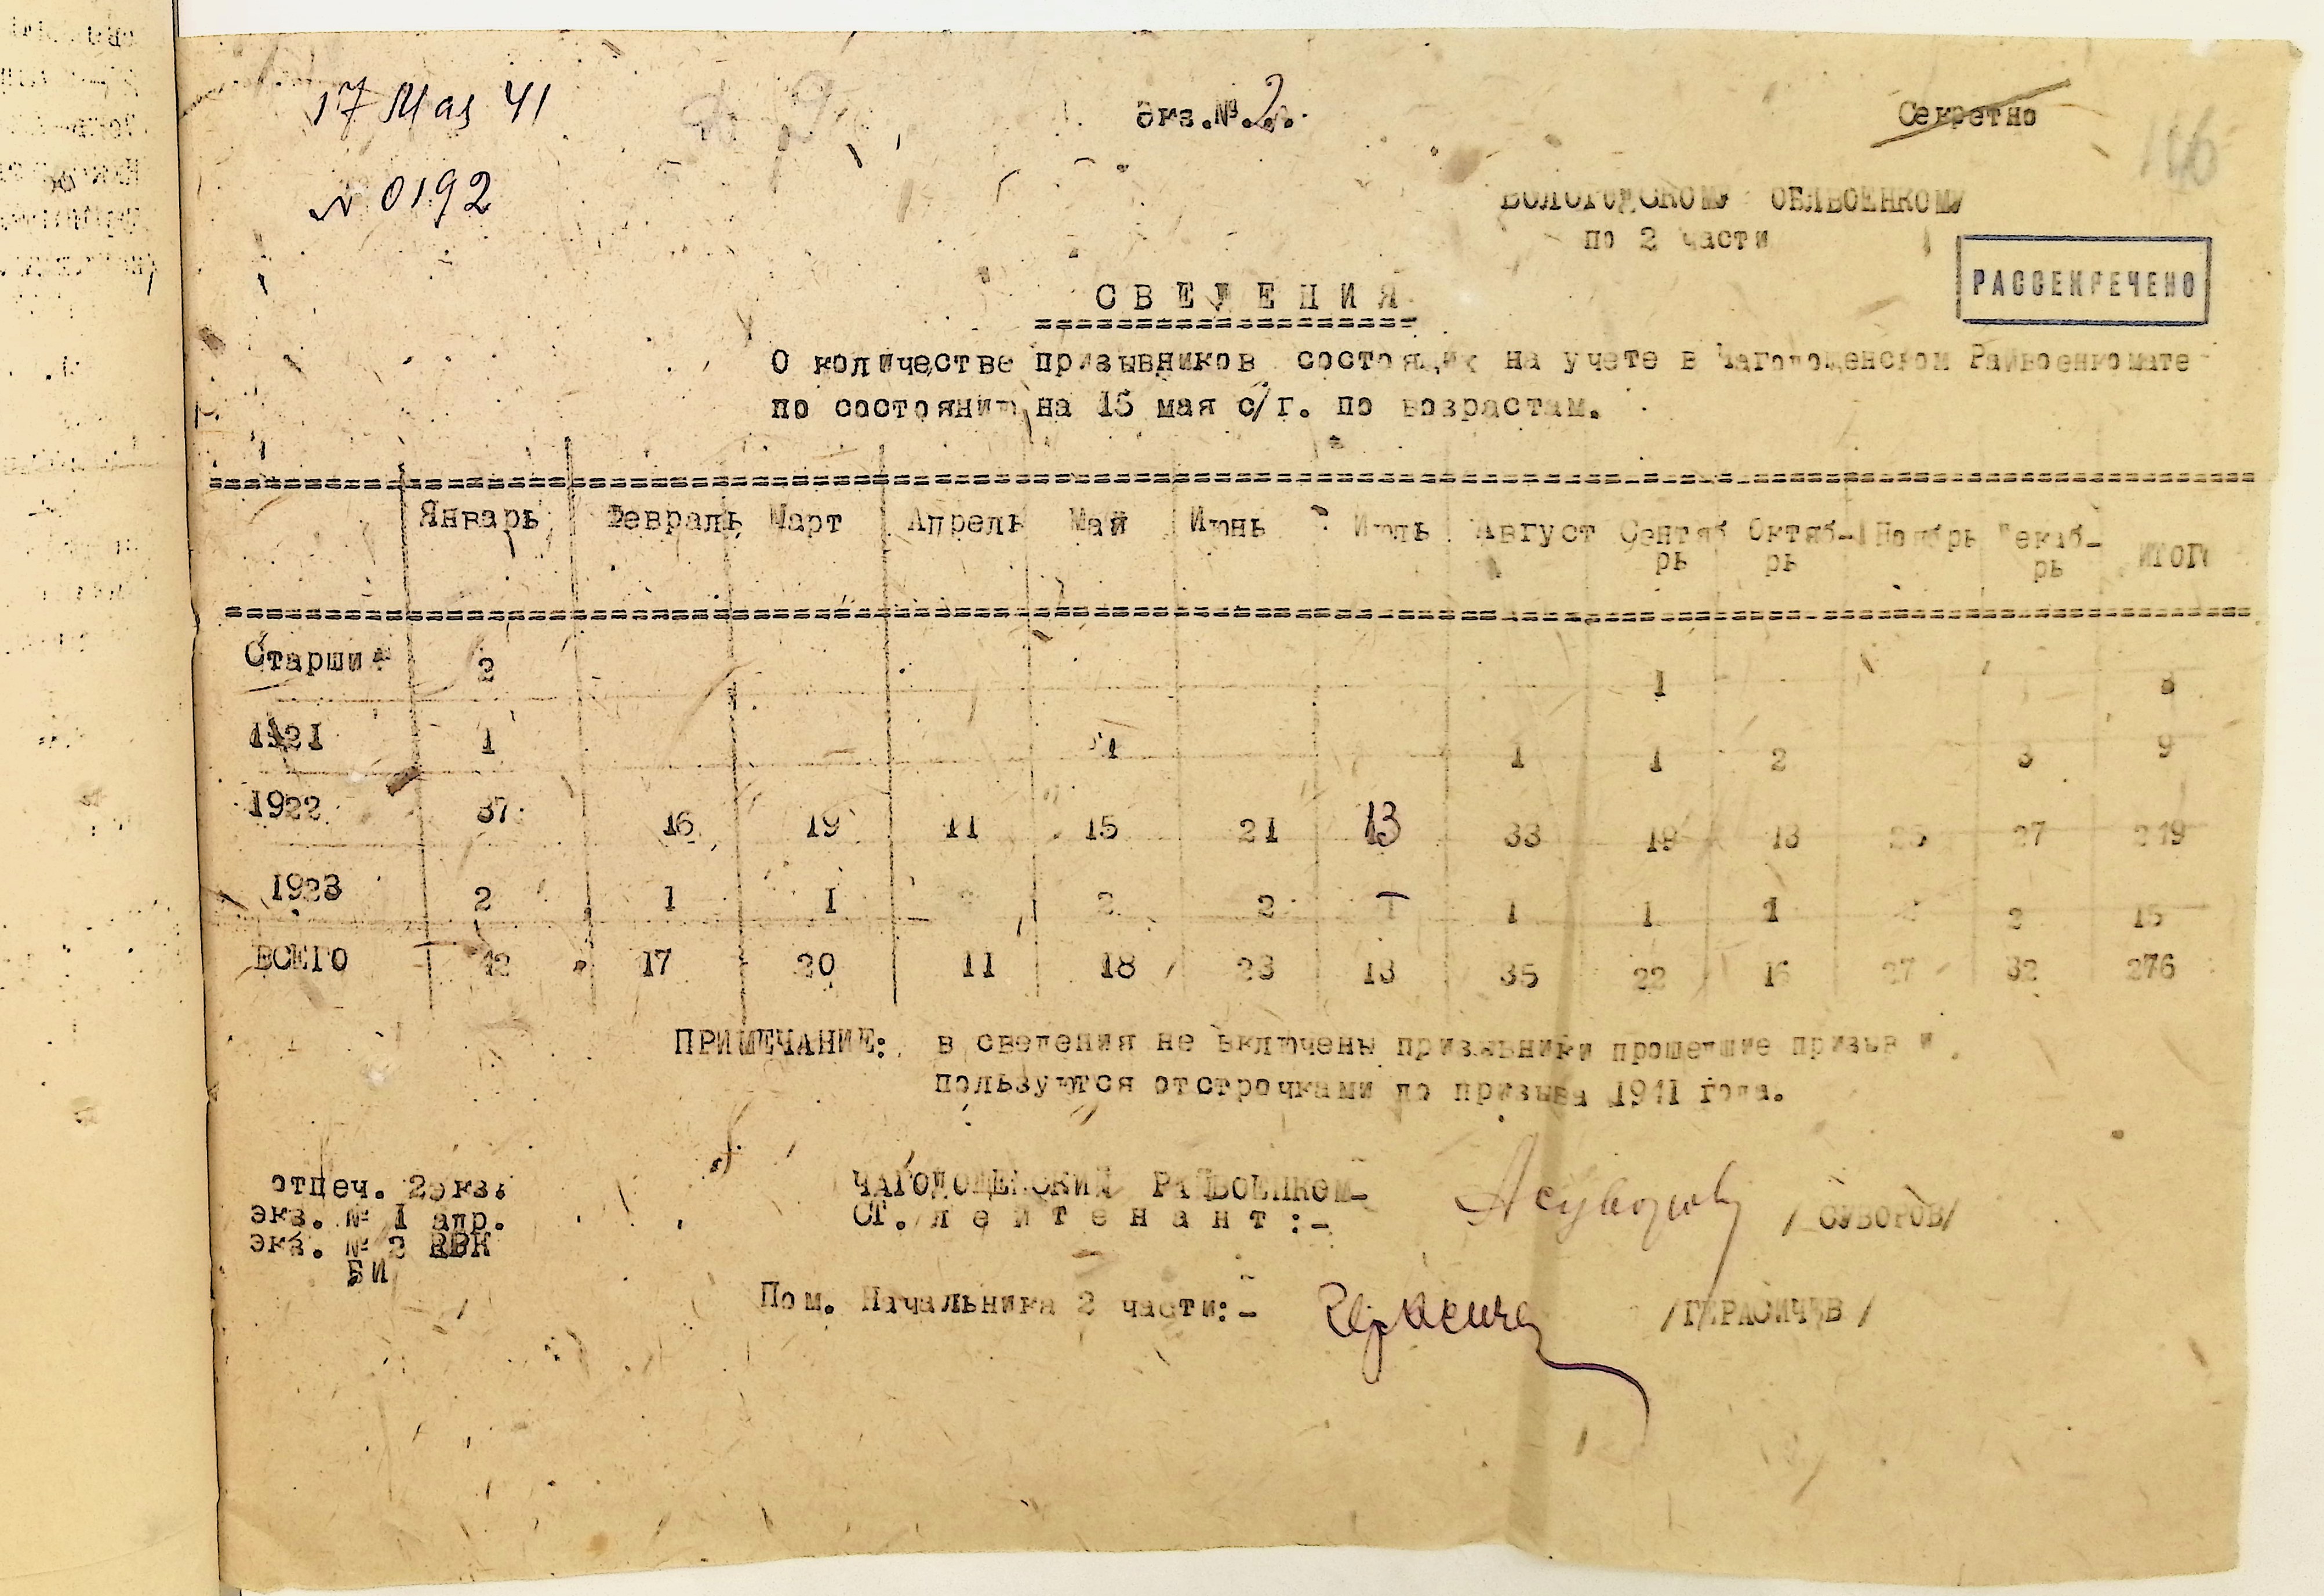 17 Мая 41
Экз.№.2.
Секретно
№ 0192
ВОЛОГОДСКОМУ ОБЛВОЕНКОМУ
по 2 части
РАССЕКРЕЧЕНО
СВЕДЕНИЯ
О количестве призывников состоящих на учете в Чагодощенском Райвоенкомате
по состоянию на 15 мая с/г. по возрастам.
Январь Февраль Март Апрель Май Июнь Июль Август Сентябрь Октяб-рь Ноябрь Декаб-рь ИТОГО
Старши 2 1 3
1921 1 1 1 1 2 3 9
1922 37 16 19 11 15 21 13 33 19 13 25 27 249
1923 2 1 1 2 2 1 1 1 2 15
ВСЕГО 42 17 20 11 18 23 13 35 22 16 27 32 276
ПРИМЕЧАНИЕ: в сведения не включены призывники прошедшие призыв и
пользуются отстрочками до призыва 1941 года.
отпеч. 2экз.
экз. № 1 адр.
экз. № 2 РВК
БИ
ЧАГОДОЩЕНСКИЙ РАЙВОЕНКОМ-
СТ. лейтенант:- /СУВОРОВ/
Пом. Начальника 2 части:- /ГЕРАСИЧЕВ/